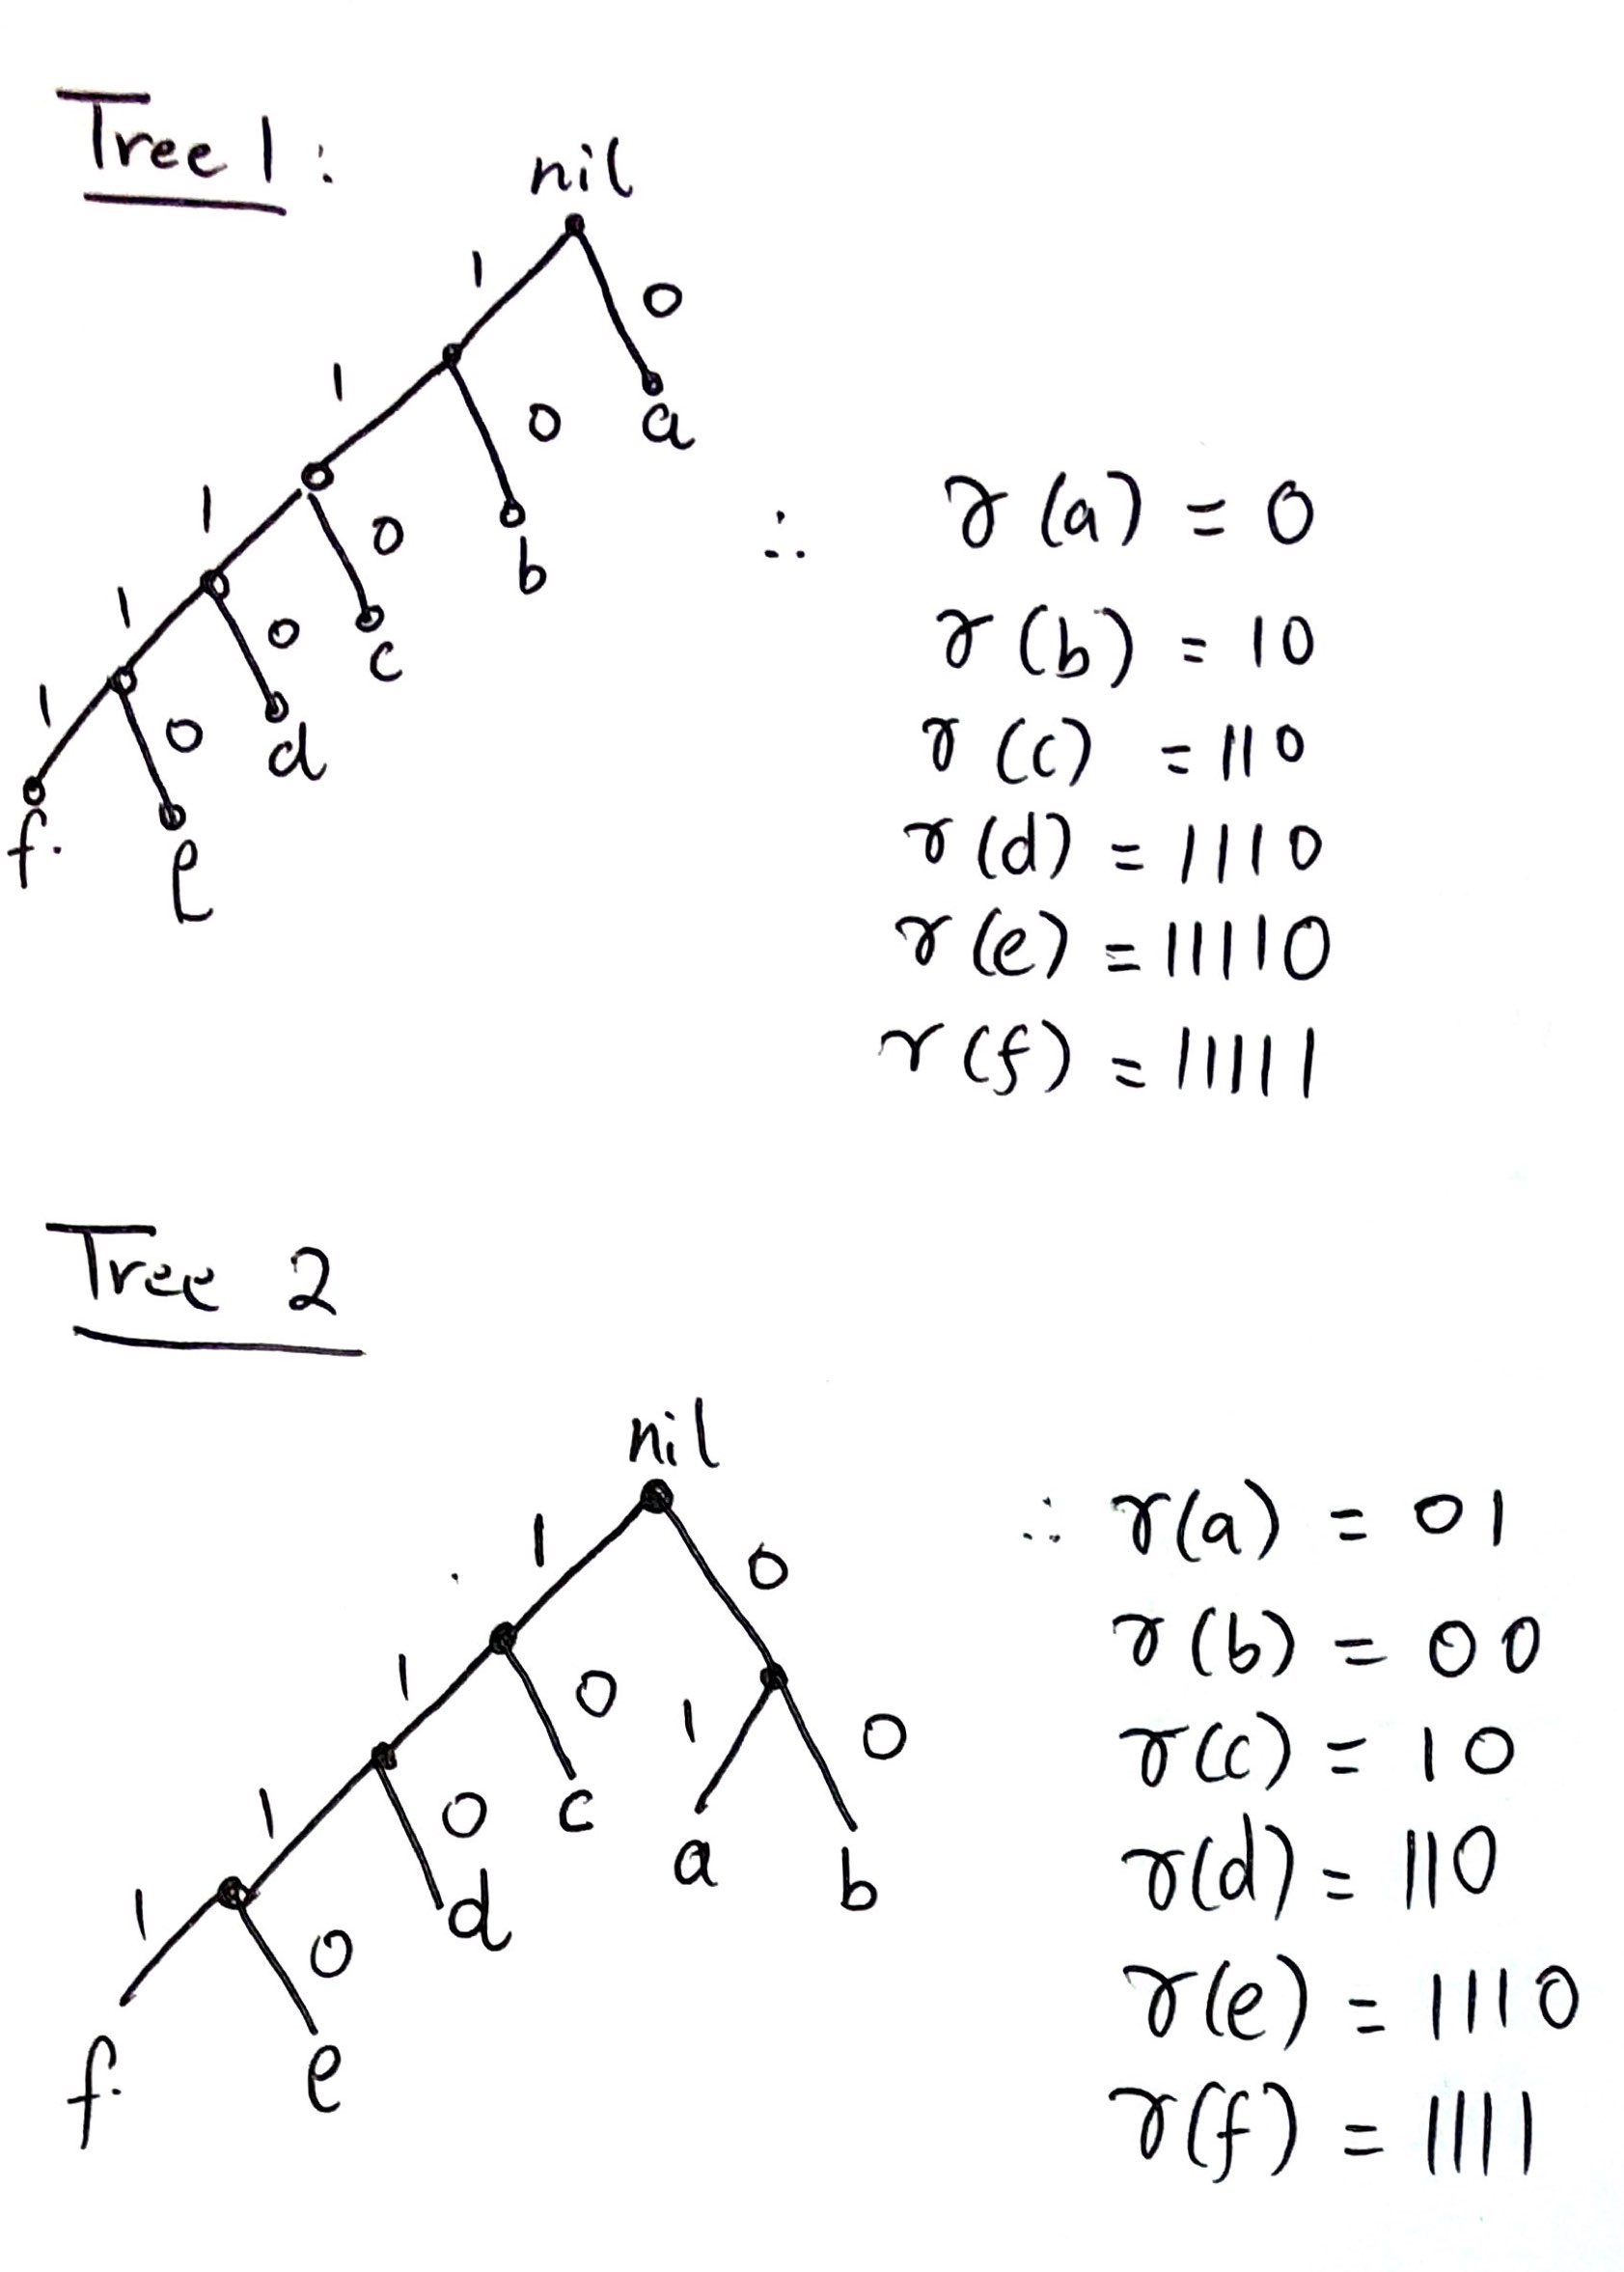 Tree 1 :
nil
1 0
1 0 a
1 0 b
1 0 c
1 0 d
f. e
∴ γ(a) = 0
γ(b) = 10
γ(c) = 110
γ(d) = 1110
γ(e) = 11110
γ(f) = 11111
Tree 2
nil
1 0
1 0 1 0
1 0 c a b
1 0 d
f. e
∴ γ(a) = 01
γ(b) = 00
γ(c) = 10
γ(d) = 110
γ(e) = 1110
γ(f) = 1111